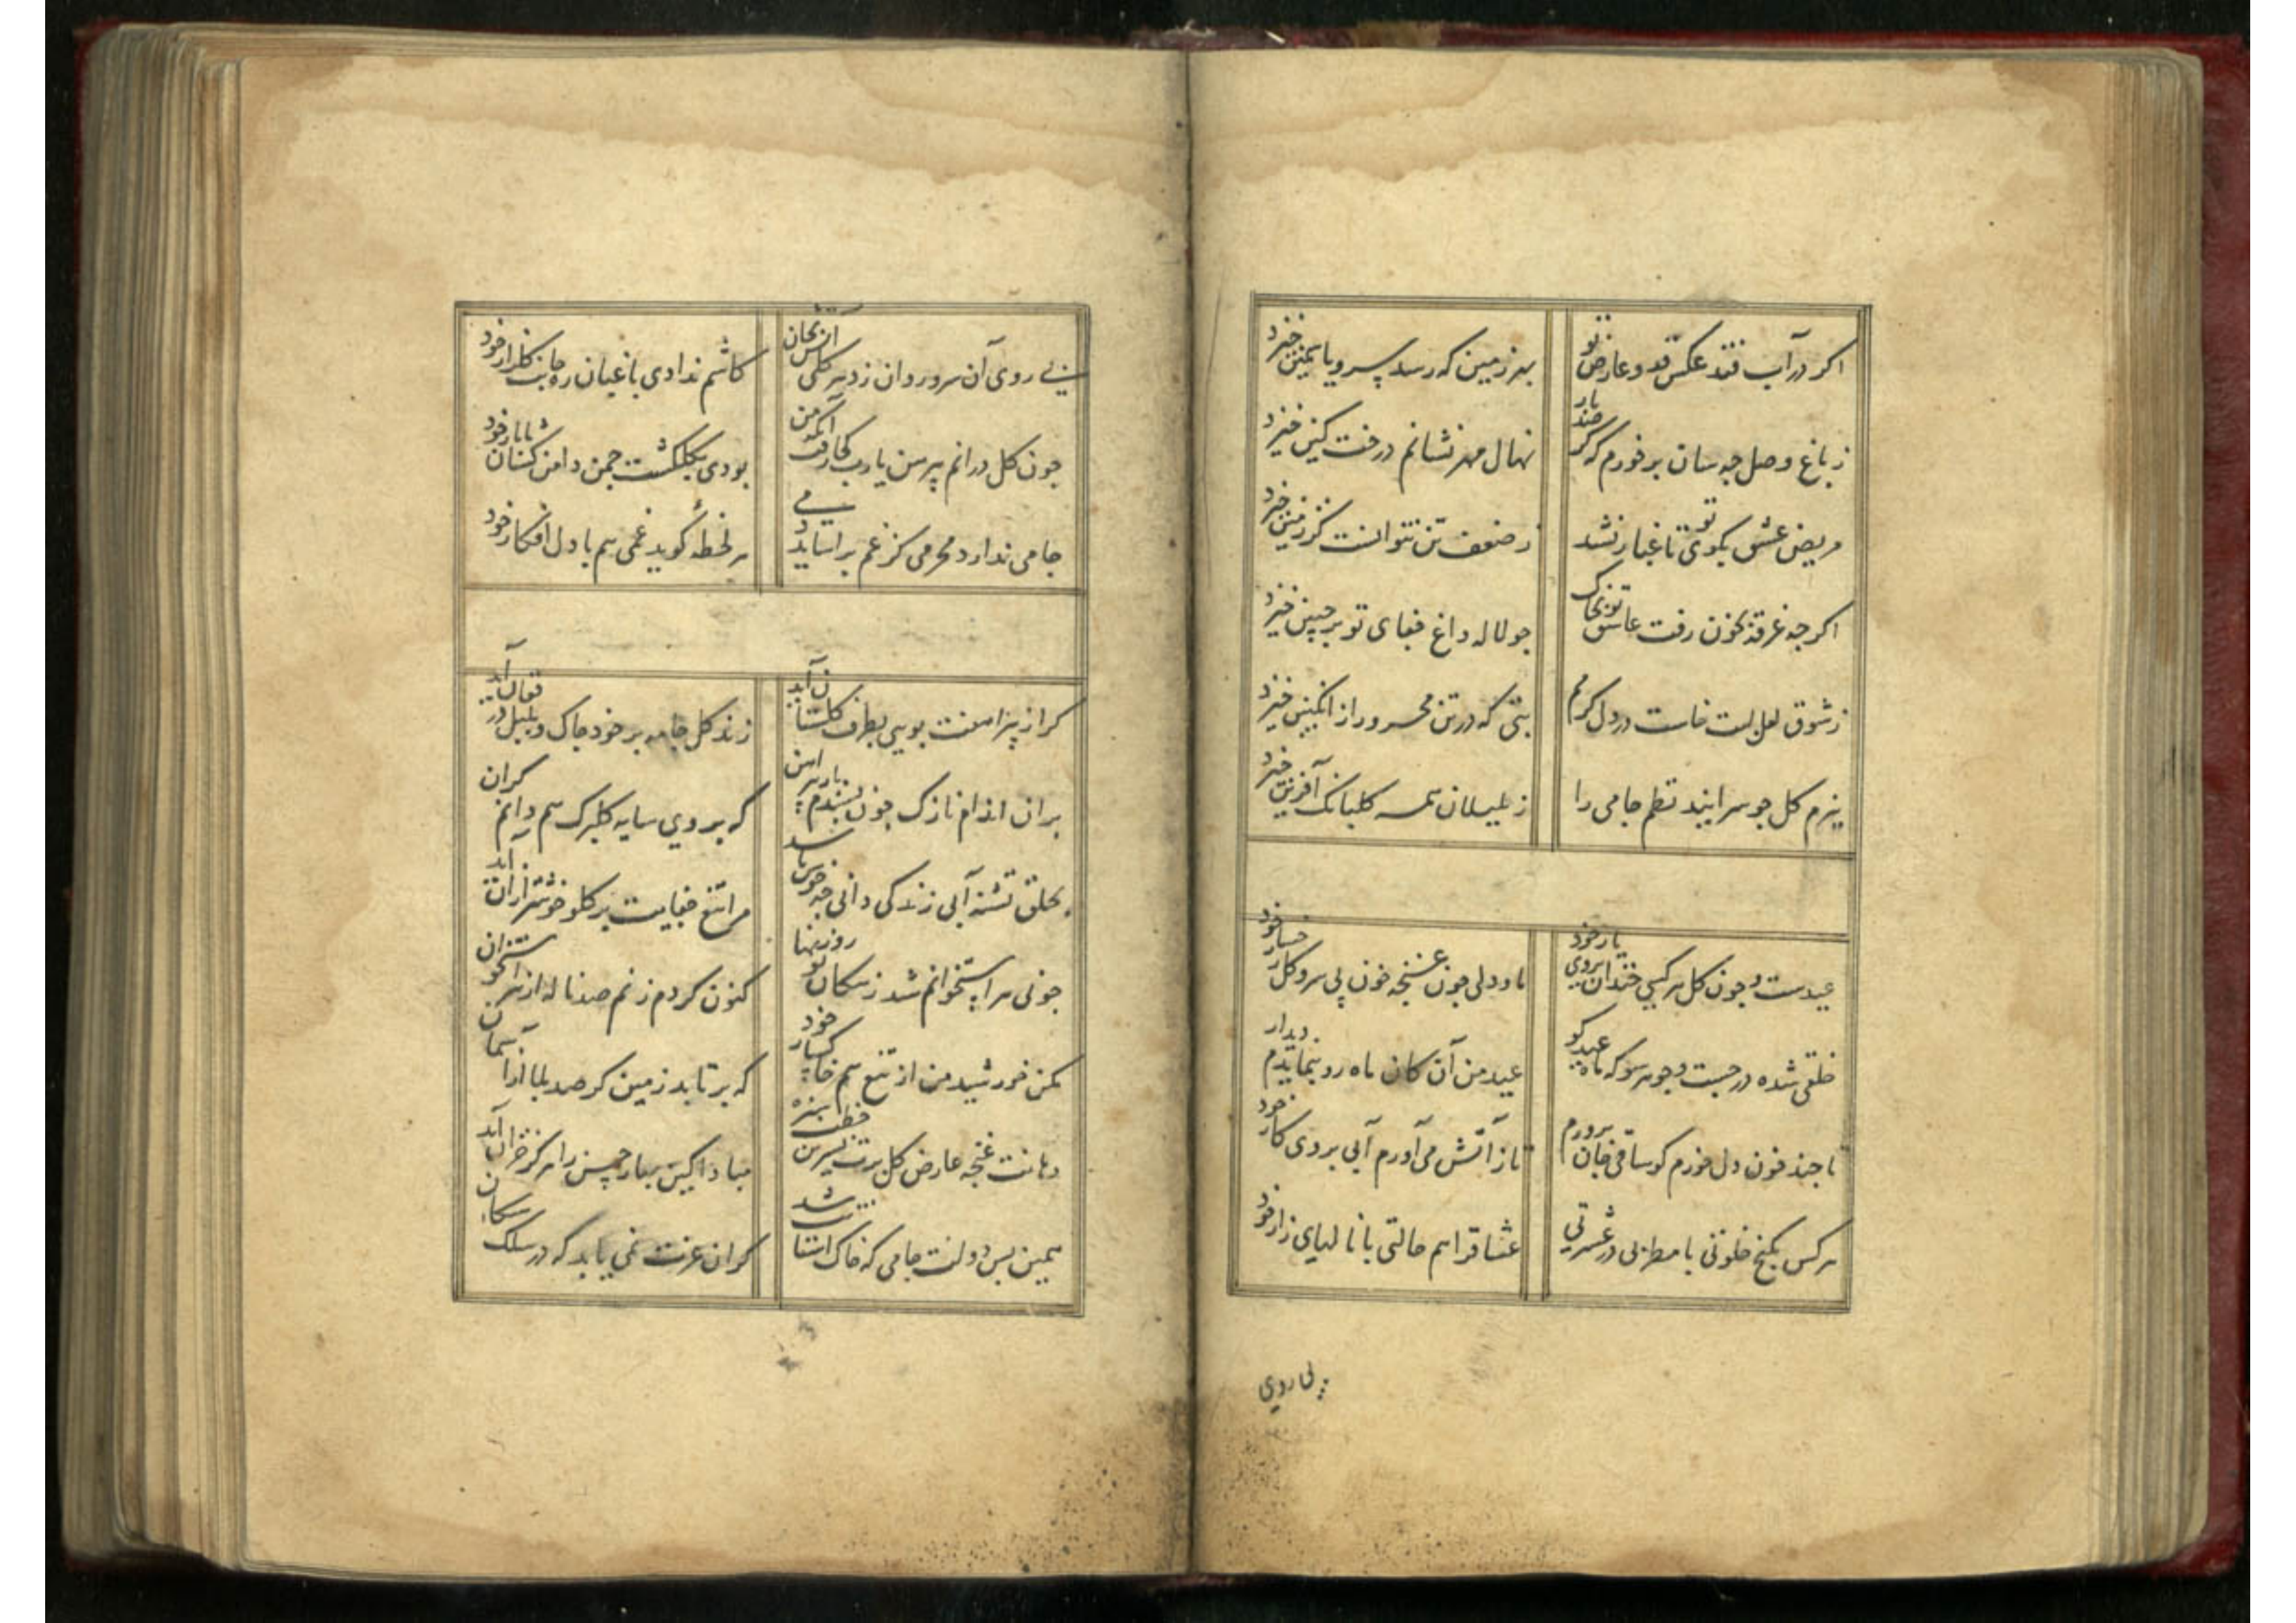 اکر در آب فتد عکس قد و عارض تو بهر زمین که رسد سرو یاسمین خیزد
ز باغ وصل چه سان برخورم که کر صد بار نهال مهر نشانم درخت کین خیزد
مریض عشق بکوی تو تا غبار نشد ز ضعف تن نتوانست کز زمین خیزد
اکرچه غرقه بخون رفت عاشق تو بخاک چو لاله داغ جفای تو بر جبین خیزد
ز شوق لعل لبت خاست در دل کرمم تبی که در تن محرور از انکبین خیزد
ببزم کل چو سرایند نظم جامی را ز بلبلان همه کلبانک آفرین خیزد
عیدست و چون کل هر کسی خندان بروی یار خود ما و دلی چون غنچه خون بی سرو کلرخسار خود
خلقی شده در جست و جو هر سو که ماه عید کو عید من آن کان ماه رو بنمایدم دیدار خود
تا چند خون دل خورم کو ساقی جان پرورم تا ز آتش می آورم آبی بروی کار خود
هر کس بکنج خلوتی با مطربی در عشرتی عشاق را هم حالتی با نالهای زار خود
بی روی
بی روی آن سرو روان زد هر کلی آتش بجان کاشم ندادی باغبان ره جانب کلزار خود
چون کل درانم پیرهن یارب کجا رفت آنکه من بودی بکلکشت چمن دامن کشان با یار خود
جامی ندارد محرمی کز غم براساید دمی هر لحظه کوید غمی هم با دل افکار خود
کر از پیراهنت بویی بطرف کلستان آید زند کل جامه بر خود چاک و بلبل در فغان آید
بران اندام نازک چون پسندم بار پیراهن که بر وی سایه کلبرک هم دانم کران آید
بحلق تشنه آب زندکی دانی چه خوش باشد مرا تیغ جفایت بر کلو خوشتر ازان آید
چو نی هر استخوانم شد ز پیکان تو روزنها کنون کر دم زنم صد ناله از هر استخوان آید
مکن خورشید من از تیغ هم خاکسار خود که برتابد زمین کر صد بلا از آسمان آید
دهانت غنچه عارض کل برت نسرین خطت سبزه مبادا کین بهار حسن را هرکز خزان آید
همین بس دولت جامی که خاک آستانت شد کر آن عزت نمی یابد که در سلک سکان